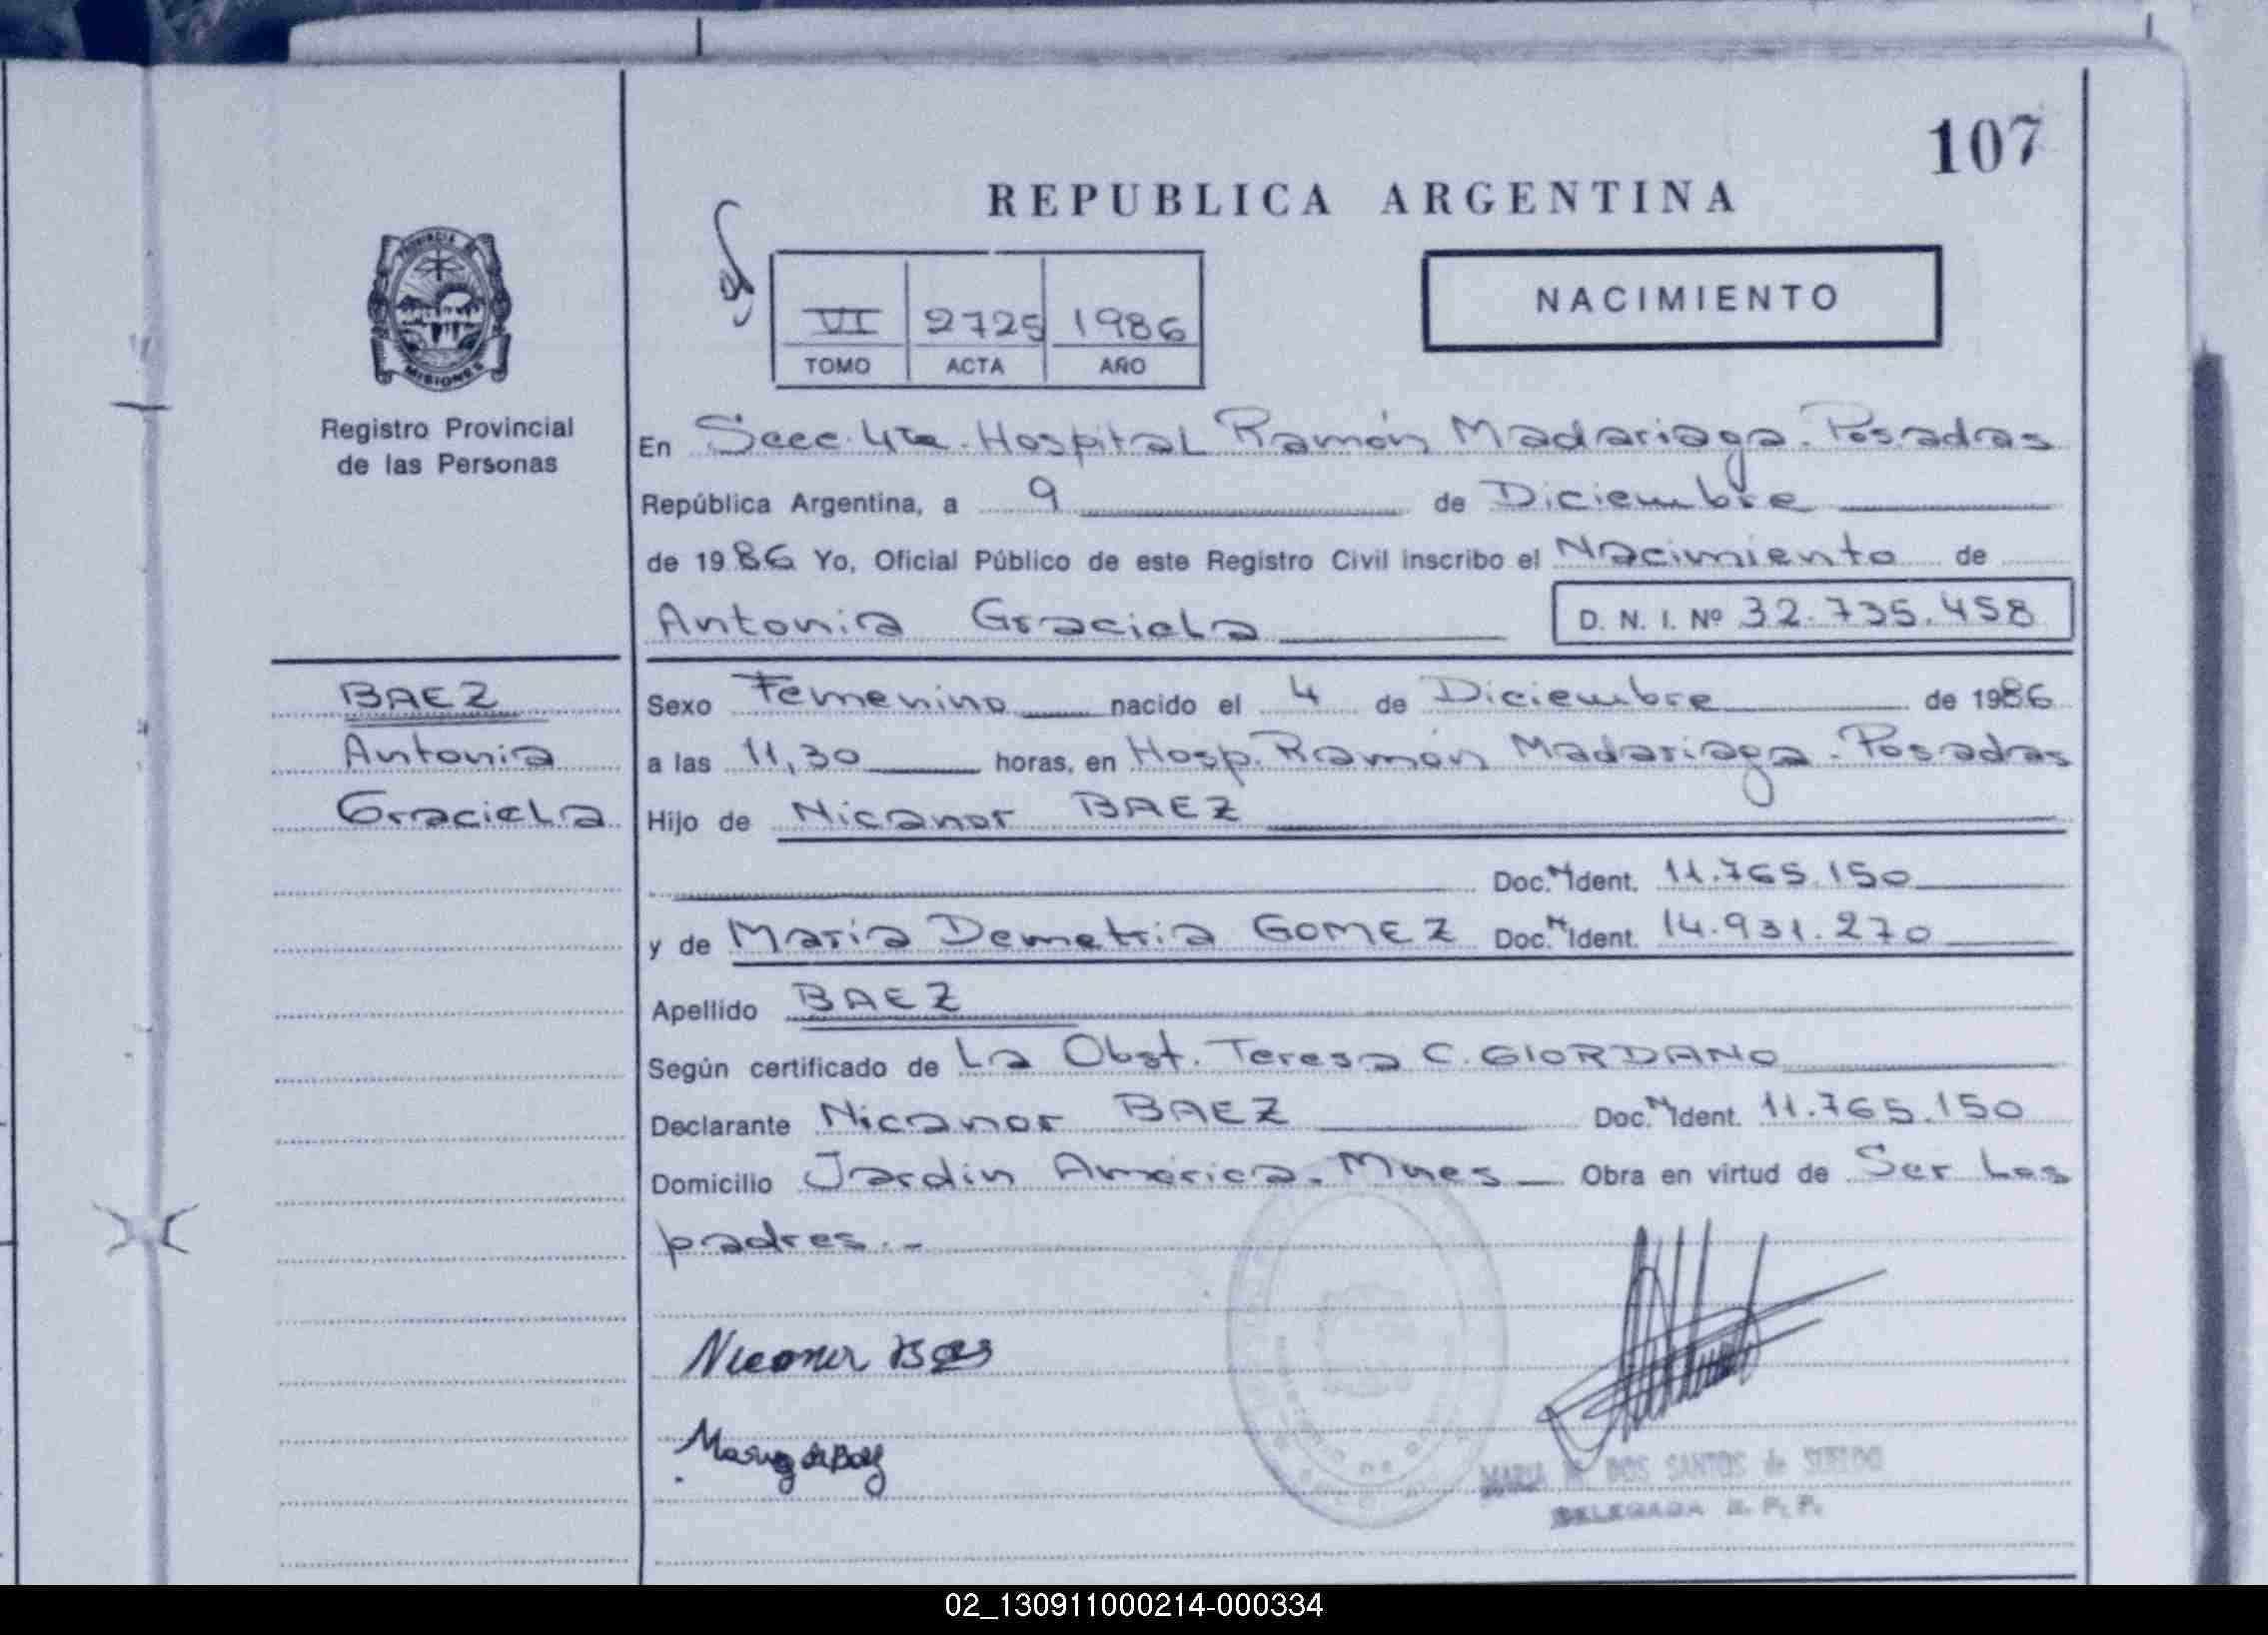 107
REPUBLICA ARGENTINA
NACIMIENTO
VI 2725 1986
TOMO ACTA AÑO
PROVINCIA DE
MISIONES
Registro Provincial
de las Personas
En Secc. 4ta. Hospital Ramón Madariaga. Posadas
República Argentina, a 9 de Diciembre
de 1986 Yo, Oficial Público de este Registro Civil inscribo el Nacimiento de
Antonia Graciela D. N. I. Nº 32.735.458
BAEZ
Antonia
Graciela
Sexo Femenino nacido el 4 de Diciembre de 1986
a las 11,30 horas, en Hosp. Ramón Madariaga. Posadas
Hijo de Nicanor BAEZ
Doc. N. Ident. 11.765.150
y de Maria Demetria GOMEZ Doc. N. Ident. 14.931.270
Apellido BAEZ
Según certificado de La Obst. Teresa C. GIORDANO
Declarante Nicanor BAEZ Doc. N. Ident. 11.765.150
Domicilio Jardin América. Mnes Obra en virtud de Ser Los
padres.-
Nicanor
MARIA DOS SANTOS de
DELEGADA R. P. P.
02_130911000214-000334